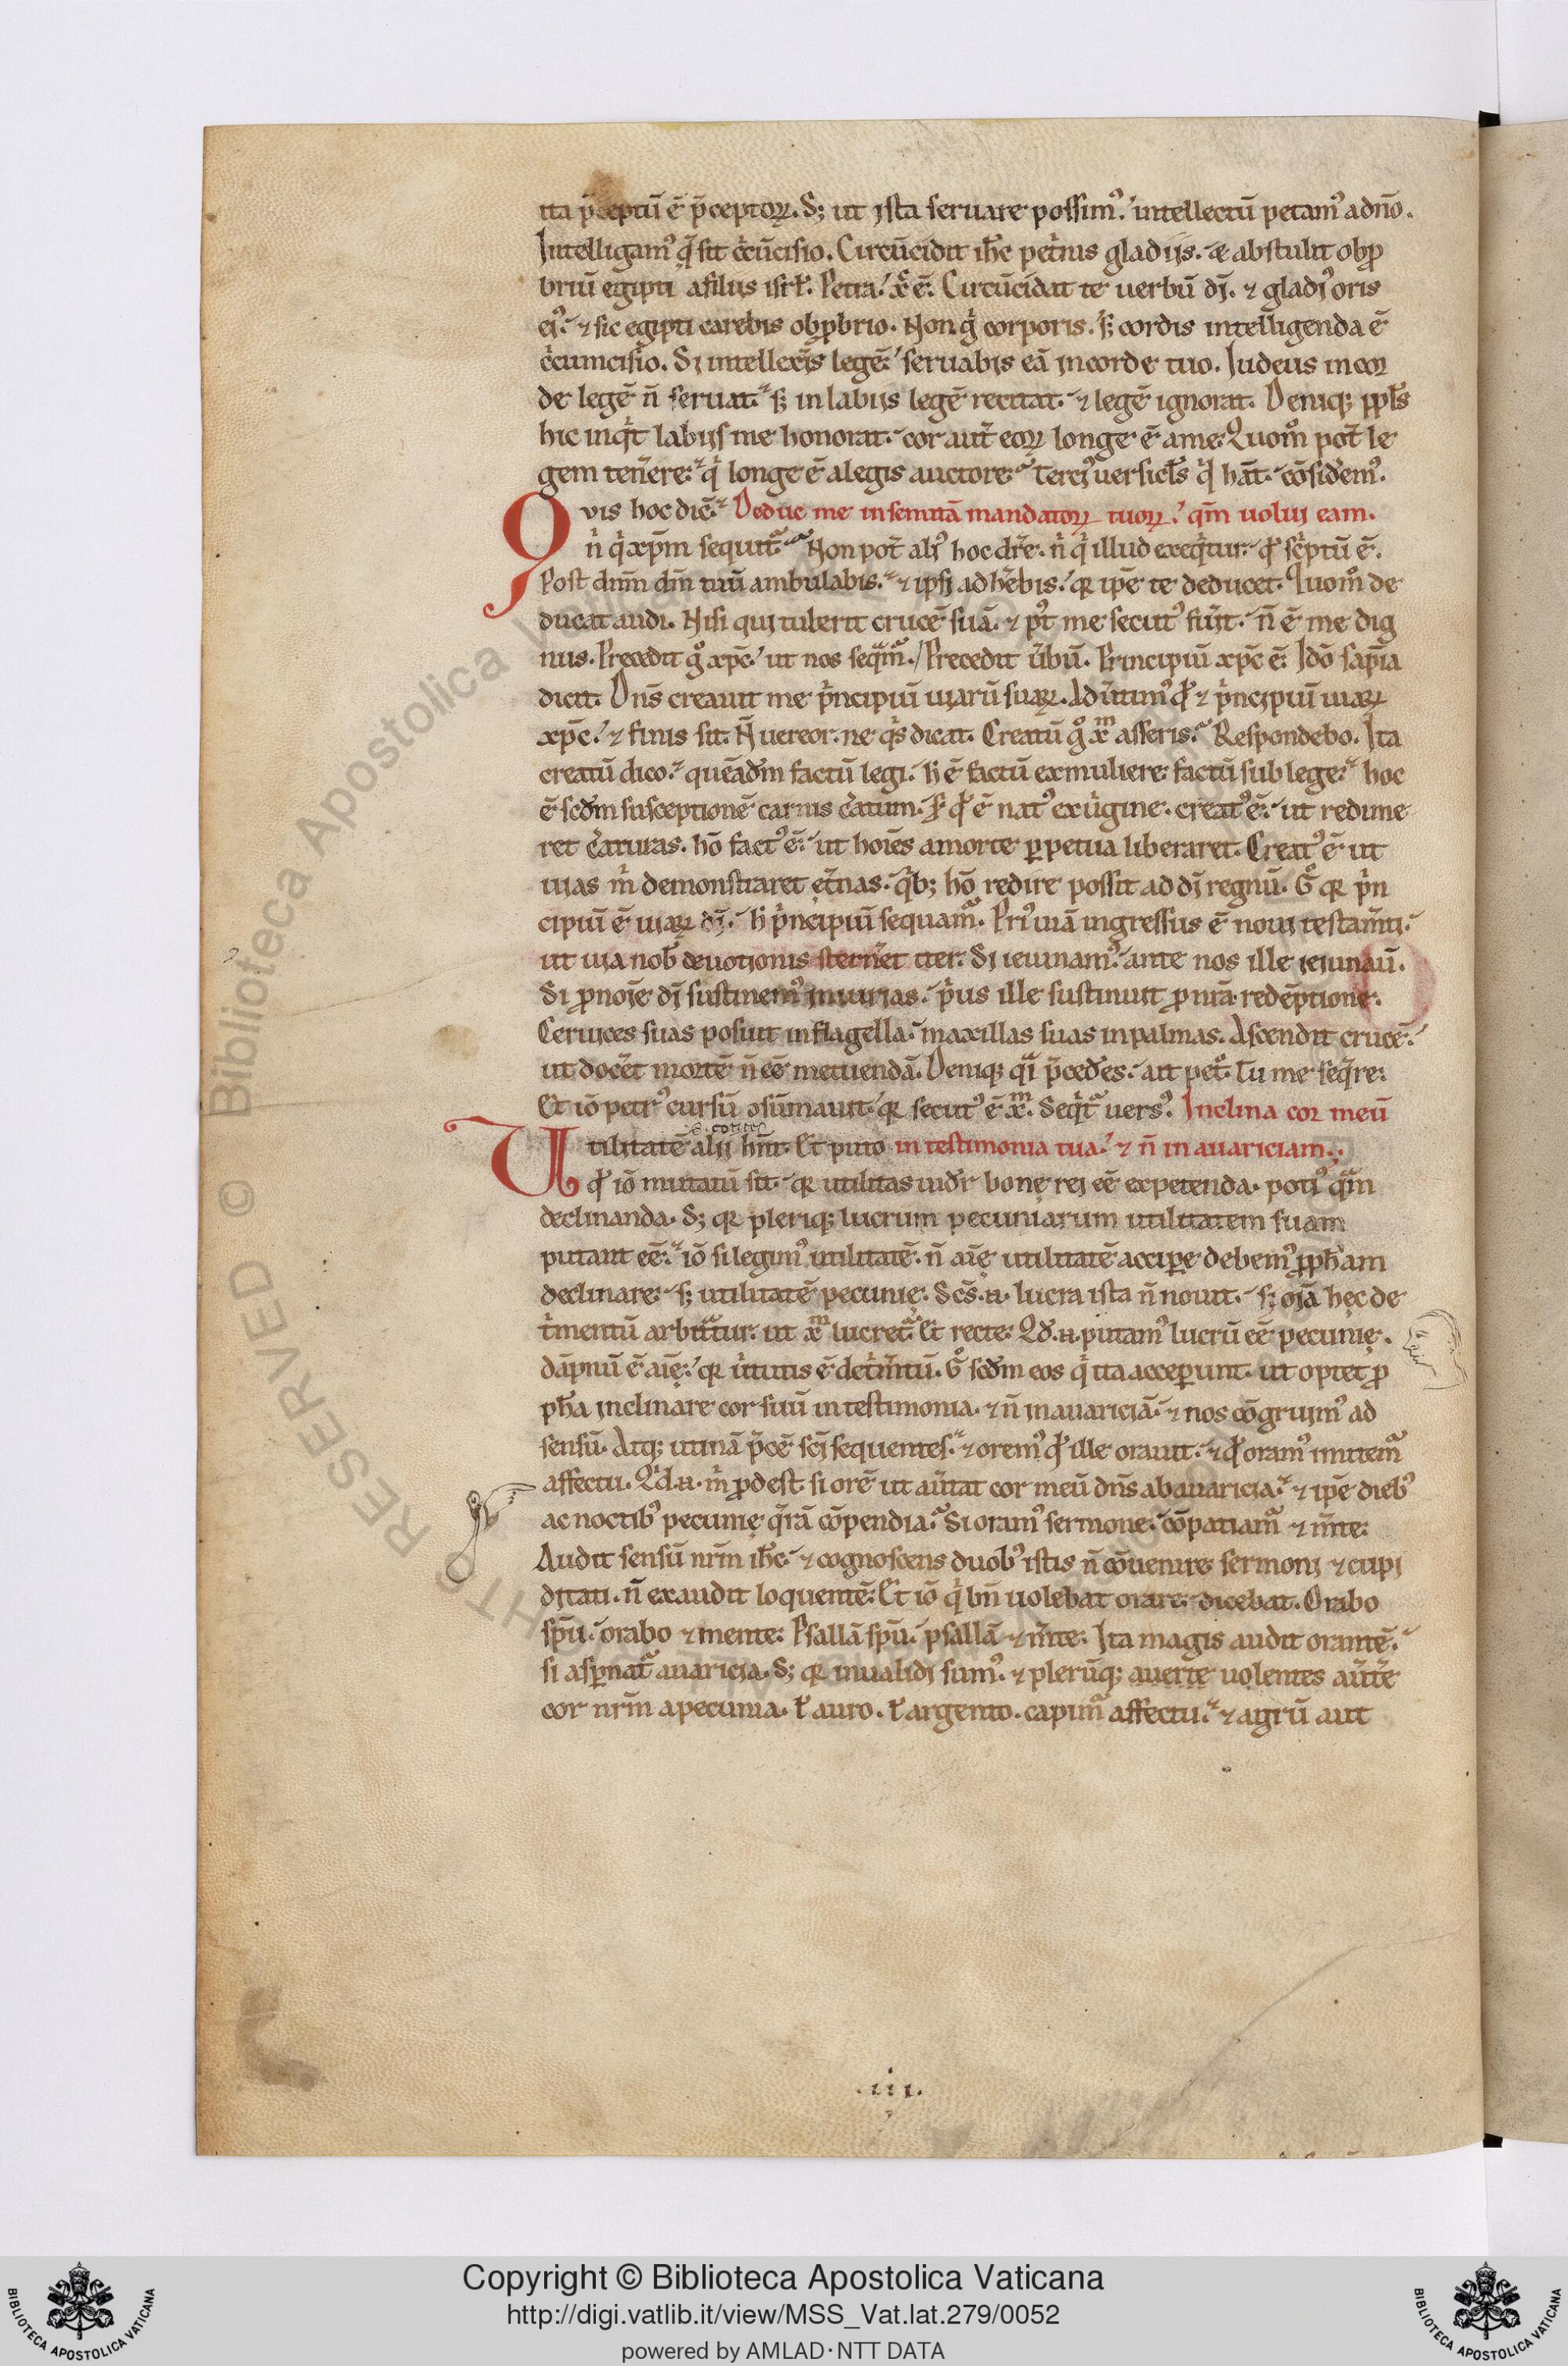 ita p̄ceptū ē p̄ceptoꝝ. S; ut ista seruare possimꝰ. intellectū petamꝰ a dn̄o.
Intelligamꝰ q̄ sit cⁱcūcisio. Circūcidit ih̄c petⁱnis gladijs. & abstulit obꝓ
briū egipti a filiis isrł. Petra xp̄c ē. Circūcidat te uerbū dī. ⁊ gladiꝰ oris
eiꝰ. ⁊ sic egipti carebis obꝓbrio. Non gͥ corporis. s; cordis intelligenda ē
cⁱcumcisio. Si intellexeīs legē. seruabis eā in corde tuo. Iudeus in cor
de legē n̄ seruat. s; in labiis legē recitat. ⁊ legē ignorat. Deniq; ppłs
hic inqͥt labijs me honorat. cor aut̄ eoꝝ longe ē a me. Quom̊ pot̄ le
gem tenere. qͥ longe ē a legis auctore. Terciꝰ uersicłs qͥ hāt. cōsidem̄ꝰ.
Qvis hoc dic̄. Deduc me in semitā mandatoꝝ tuoꝝ. qm̄ uolui eam.
n̄ qͥ xp̄m sequit᷑. Non pot̄ aliꝰ hoc dic̄e. nͥ qͥ illud exeqͥtur. qđ scⁱptū ē.
Post dn̄m dm̄ tuū ambulabis. ⁊ ipsi adh̄ebis. qꝛ ipē te deducet. Quom̊ de
ducat audi. Nisi qui tulerit crucē suā. ⁊ pꝰt me secutꝰ fu̅it. n̄ ē me dig
nus. Precedit g̊ xp̄c. ut nos seqᵃm᷑. Precedit ūbū. Principiū xp̄c ē. Idō sap̄ia
dicit. Dn̄s creauit me pⁱncipiū uiarū suaꝝ. Aduītimꝰ qđ ⁊ pⁱncipiū uiaꝝ
xp̄c. ⁊ finis sit. N̄ uereor. ne qͥs dicat. Creatū g̊ xᵐ asseris. Respondebo. Ita
creatū dico. quēadm̄ factū legi. h̄ ē factū ex muliere factū sub lege. hoc
ē scd̄m susceptionē carnis c̄atum. S; qđ ē natꝰ ex uⁱgine. creatꝰ ē. ut redime
ret c̄aturas. hō factꝰ ē. ut hoīes a morte ꝑpetua liberaret. Creatꝰ ē ut
uias mͥ demonstraret et̄nas. qͥb; hō redire possit ad dī regnū. G̊ qꝛ pⁱn
cipiū ē uiaꝝ dī. h̄ pⁱncipiū sequam᷑. Priꝰ uiā ingressus ē noui testam̄ti.
ut uia nob̄ deuotionis sterneret iter. Si ieiunamꝰ. ante nos ille ieiunauit.
Si ꝓ noīe dī sustinemꝰ iniurias. pⁱus ille sustinuit ꝓ nr̄a redēptione.
Ceruices suas posuit in flagella. maxillas suas in palmas. Ascendit crucē.
ut doc̄et mortē n̄ eē metuendā. Deniq; qͣi p̄cedēs. ait pet̊. Tu me seq̄re.
Et iō petrꝰ cursū ↄsūmauit. qꝛ secutꝰ ē xᵐ. Seqͥt᷑ uersꝰ. Inclina cor meū
Utilitatē alij hn̄t. Et puto in testimonia tua. ⁊ n̄ in auariciam.
qđ iō mutatū sit. qꝛ utilitas uidr̄ bonę rei eē expetenda. potiꝰ qᵃm
declinanda. S; qꝛ pleriq; lucrum pecuniarum utilitatem suam
putant eē. iō si legimꝰ utilitatē. n̄ aīę utilitatē accipe debemꝰ ꝓph̄am
declinare. s; utilitatē pecunię. Scs̄. n. lucra ista n̄ nouit. s; oīa hęc de
tⁱmentū arbitrat᷑. ut xᵐ lucret᷑. Et recte. Qd̄. n. putamꝰ lucrū eē pecunię.
dāpnū ē aīę. qꝛ uⁱtutis ē detⁱm̄tū. G̊ scd̄m eos qͥ ita acceꝑunt. ut optet ꝓ
ph̄a inclinare cor suū in testimonia. ⁊ n̄ in auariciā. ⁊ nos cōgruimꝰ ad
sensū. Atq; utinā p̄cē scī sequentes. ⁊ oremꝰ qđ ille orauit. ⁊ qđ oramꝰ imitem᷑
affectu. Qͥd. n. mͥ ꝓdest si orē ut au̅tat cor meū dn̄s ab auaricia. ⁊ ipē diebꝰ
ac noctibꝰ pecunię q̄rā cōpendia. Si oramꝰ sermone. cōpatiam᷑ ⁊ m̄te.
Audit sensū nr̄m ih̄c ⁊ cognoscens duobꝰ istis n̄ cōuenire sermoni ⁊ cupi
ditati. n̄ exaudit loquentē. Et iō qͥ bn̄ uolebat orare. dicebat. Orabo
sp̄u. orabo ⁊ mente. Psallā sp̄u. psallā ⁊ m̄te. Ita magis audit orantē.
si aspnat᷑ auaricia. S; qꝛ inualidi sumꝰ. ⁊ plerūq; auerte uolentes aūte
cor nr̄m a pecunia. ł auro. ł argento. capim᷑ affectu. ⁊ agrū aut
.iii.
Copyright © Biblioteca Apostolica Vaticana
http://digi.vatlib.it/view/MSS_Vat.lat.279/0052
powered by AMLAD·NTT DATA
BIBLIOTECA APOSTOLICA VATICANA
BIBLIOTECA APOSTOLICA VATICANA